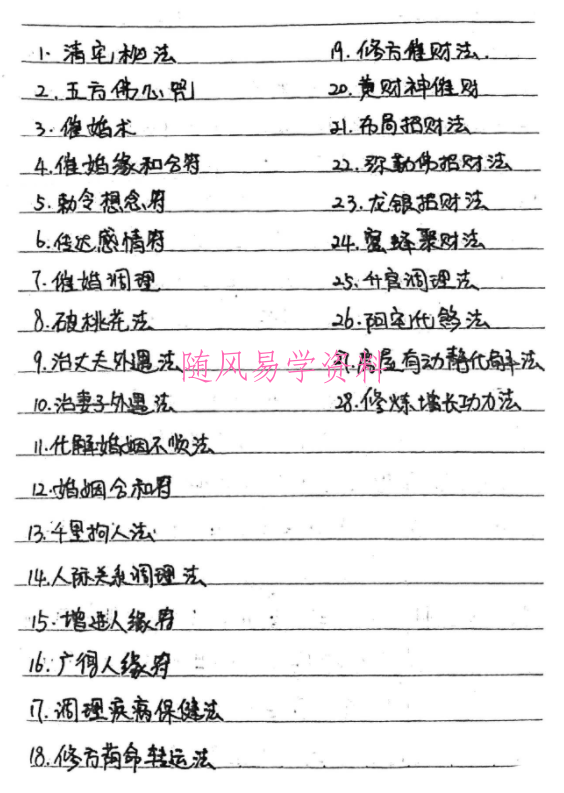 1. 清宅秘法
2. 五方佛心咒
3. 催婚术
4. 催婚缘和合符
5. 勅令想念符
6. 传达感情符
7. 催婚调理
8. 破桃花法
9. 治丈夫外遇法
10. 治妻子外遇法
11. 化解婚姻不顺法
12. 婚姻合和符
13. 千里拘人法
14. 人际关系调理法
15. 增进人缘符
16. 广得人缘符
17. 调理疾病保健法
18. 修方荫命转运法
19. 修方催财法.
20. 黄财神催财
21. 布局招财法
22. 弥勒佛招财法
23. 龙银招财法
24. 蜜蜂聚财法
25. 升官调理法
26. 阳宅化煞法
27. 房屋有动静化解法
28. 修炼增长功力法
随风易学资料